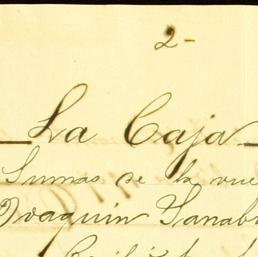 2-
La Caja
Sumas de la vue
Joaquin Sanab